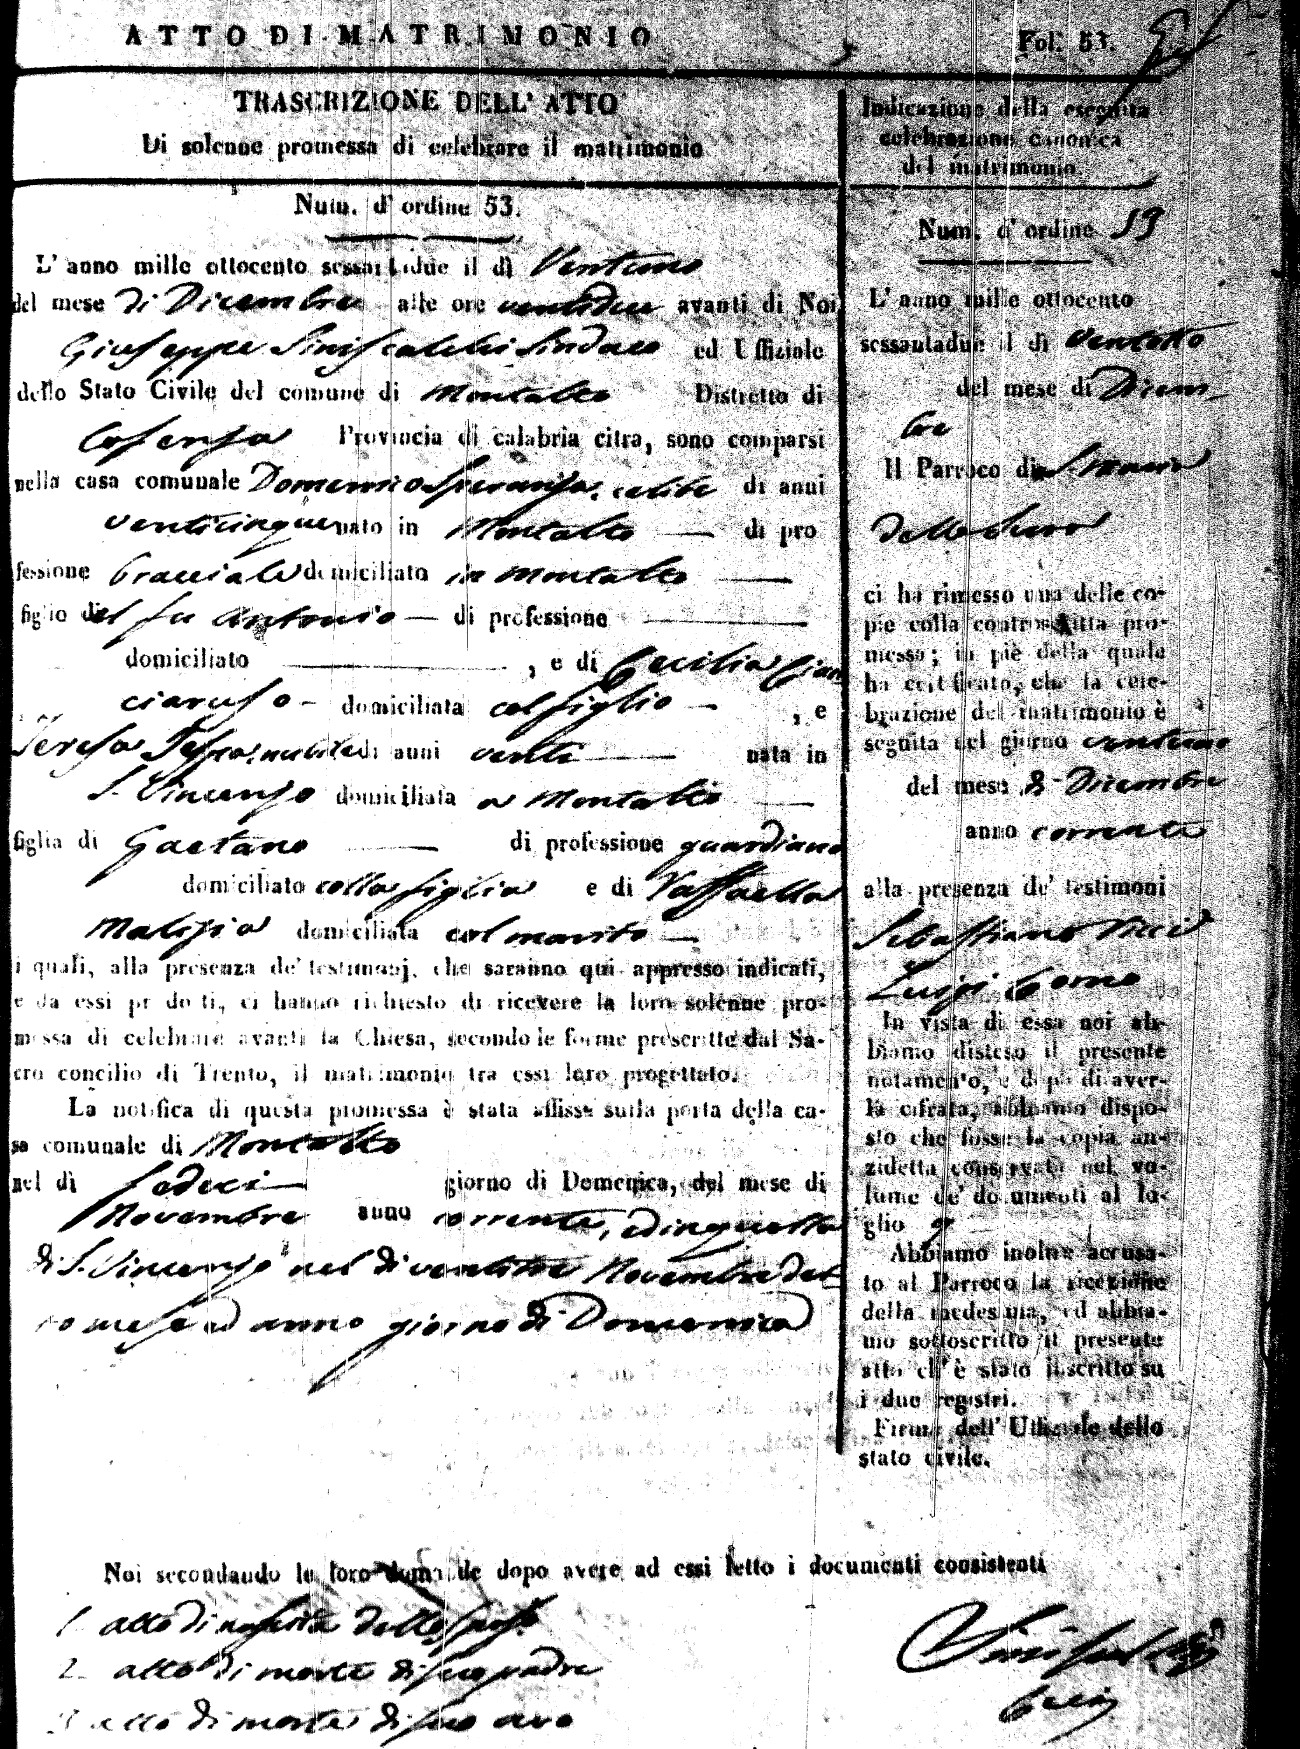 ATTO DI MATRIMONIO
Fol. 53.
TRASCRIZIONE DELL' ATTO
Di solenne promessa di celebrare il matrimonio
Num. d' ordine 53.
L' anno mille ottocento sessantadue il dì Ventuno
del mese di Dicembre alle ore ventidue avanti di Noi
Giuseppe Siniscalchi Sindaco ed Uffiziale
dello Stato Civile del comune di Montalto Distretto di
Cosenza Provincia di calabria citra, sono comparsi
nella casa comunale Domenico Speranza, celibe di anni
venticinque nato in Montalto di pro
fessione bracciale domiciliato in Montalto
figlio del fu Antonio di professione
domiciliato , e di Cecilia Cian
ciaruso domiciliata col figlio , e
Teresa nubile di anni venti nata in
S. Vincenzo domiciliata a Montalto
figlia di Gaetano di professione guardiano
domiciliato colla figlia e di Raffaella
Malizia domiciliata col marito
i quali, alla presenza de' testimonj, che saranno qui appresso indicati,
e da essi prodotti, ci hanno richiesto di ricevere la loro solenne pro-
messa di celebrare avanti la Chiesa, secondo le forme prescritte dal Sa-
cro concilio di Trento, il matrimonio tra essi loro progettato.
La notifica di questa promessa è stata affissa sulla porta della ca-
sa comunale di Montalto
nel dì sedeci giorno di Domenica, del mese di
Novembre anno corrente, ed in quella
di S. Vincenzo nel dì ventitre Novembre det
to mese ed anno giorno di Domenica
Indicazione della eseguita
celebrazione canonica
del matrimonio.
Num. d' ordine 59
L' anno mille ottocento
sessantadue il dì Ventotto
del mese di Dicem-
bre
Il Parroco di S. Maria
della
ci ha rimesso una delle co-
pie colla controscritta pro-
messa; in piè della quale
ha certificato, che la cele-
brazione del matrimonio è
seguita nel giorno ventuno
del mese di Dicembre
anno corrente
alla presenza de' testimoni
Sebastiano
Luigi
In vista di essa noi ab-
biamo disteso il presente
notamento, e dopo di aver-
la cifrata, abbiamo dispo-
sto che fosse la copia an-
zidetta conservata nel vo-
lume de' documenti al fo-
glio
Abbiamo inoltre accusa-
to al Parroco la ricezione
della medesima, ed abbia-
mo sottoscritto il presente
atto ch' è stato iscritto su
i due registri.
Firma dell' Uffiziale dello
stato civile.
Noi secondando le loro domande dopo avere ad essi letto i documenti consistenti
1. atto di nascita dello sposo
2. atto di morte di suo padre
3. atto di morte di suo avo
Siniscalchi